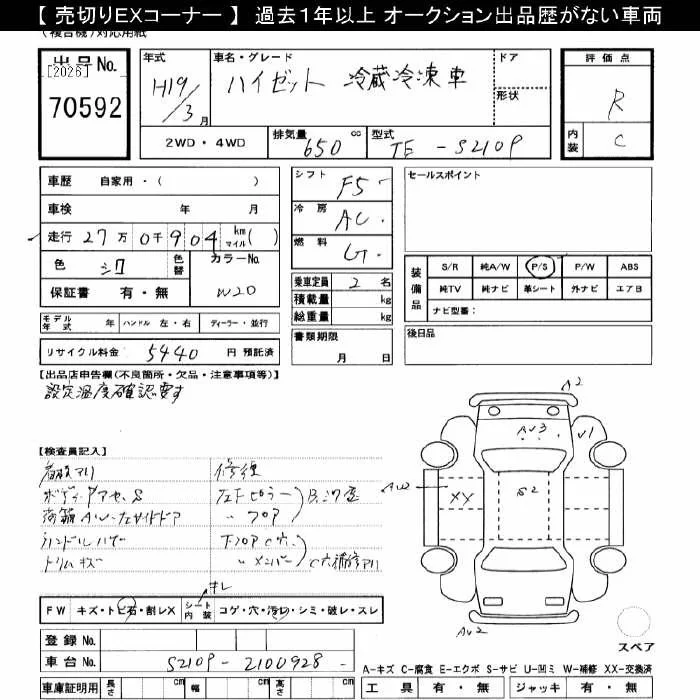 【 売切りEXコーナー 】 過去1年以上 オークション出品歴がない車両
(複合機)対応用紙
出品No.
[2026]
70592
年式
H19/3月
車名・グレード
ハイゼット 冷蔵冷凍車
ドア
形状
2WD・4WD
排気量 650 cc
型式 TE-S210P
評価点
R
内装 C
車歴 自家用・( )
車検 年 月
走行 27万0千904 km マイル( )
色 シロ 色替 カラーNo. W20
保証書 有・無
シフト F5
冷房 AC
燃料 G
乗車定員 2 名
積載量 kg
総重量 kg
セールスポイント
装備品
S/R 純A/W P/S P/W ABS
純TV 純ナビ 革シート 外ナビ エアB
ナビ型番:
モデル年式 年 ハンドル 左・右 ディーラー・並行
リサイクル料金 5440 円 預託済
書類期限 月 日
後日品
【出品店申告欄(不良箇所・欠品・注意事項等)】
設定温度確認要す
【検査員記入】
修復
ハンドルハゲ
トリムキズ
A2
AU3
U1
AW
XX
S2
AU2
スペア
FW キズ・トビ石・割レX シート内装 コゲ・穴・汚レ・シミ・破レ・スレ
キレ
登録 No.
車台 No. S210P-2100928
車庫証明用 長さ cm 幅 cm 高さ cm
A-キズ C-腐食 E-エクボ S-サビ U-凹ミ W-補修 XX-交換済
工具 有・無 ジャッキ 有・無